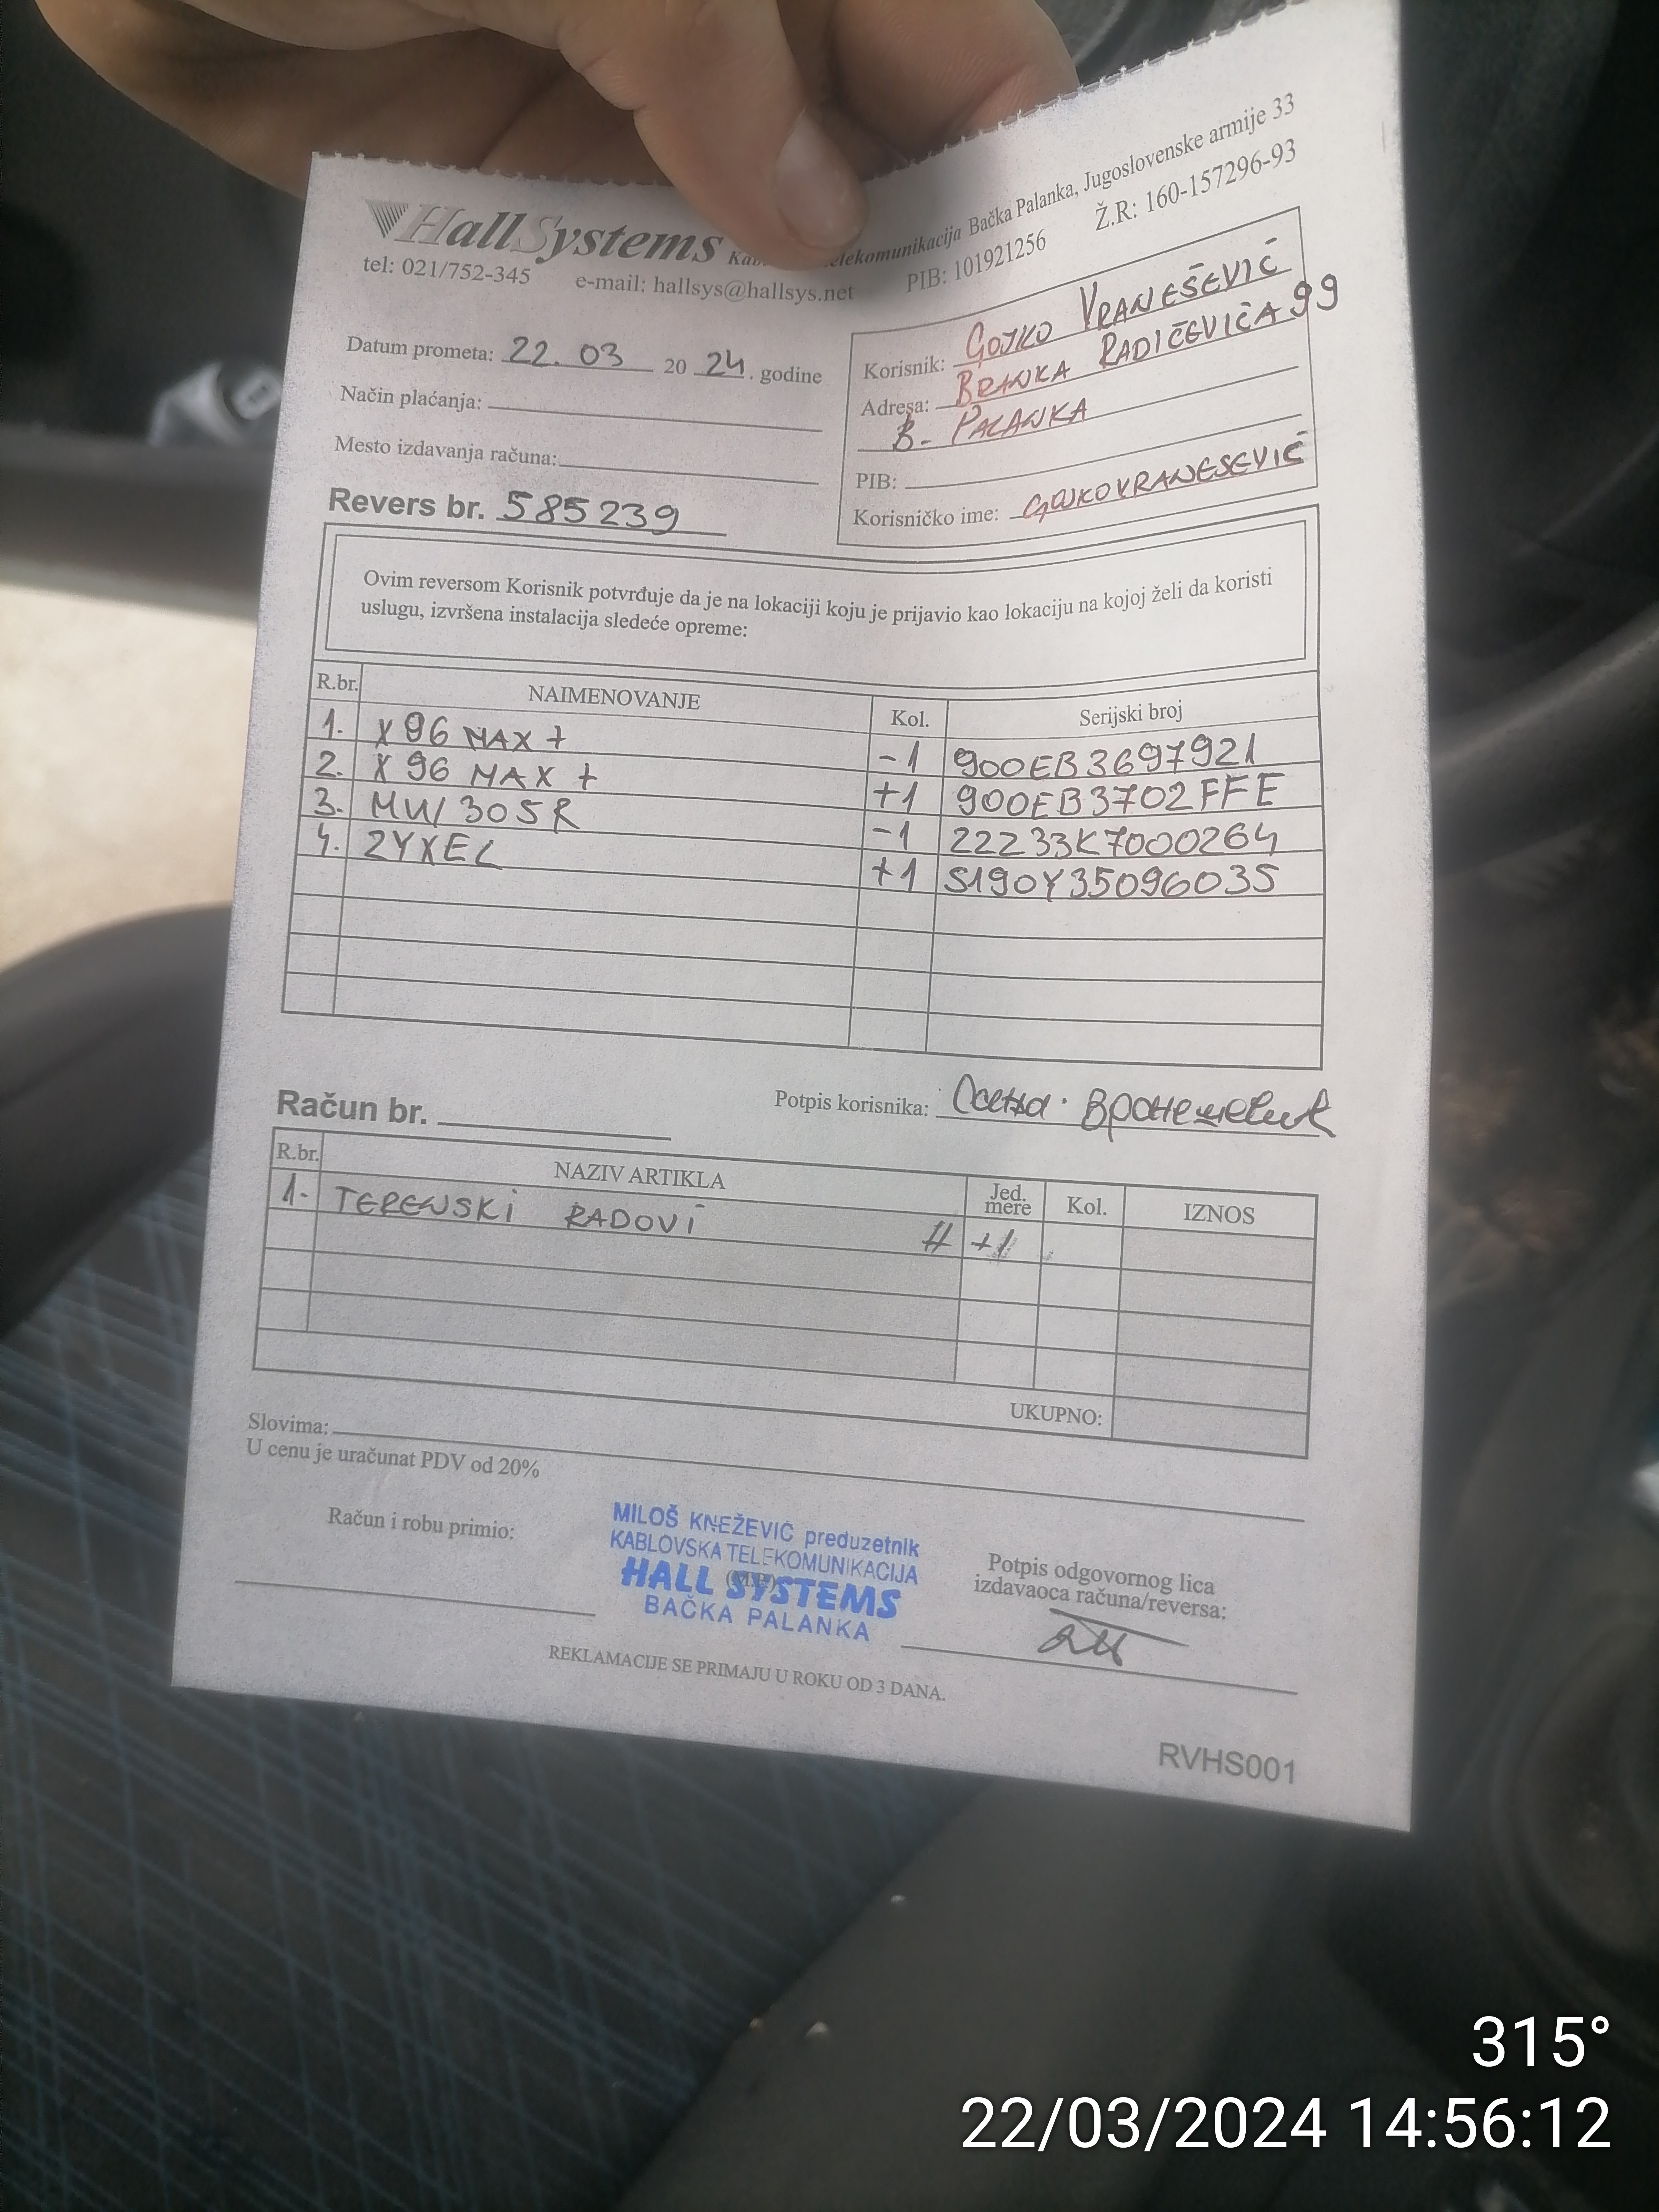 HallSystems Telekomunikacija Bačka Palanka, Jugoslovenske armije 33
tel: 021/752-345 e-mail: hallsys@hallsys.net PIB: 101921256 Ž.R: 160-157296-93
Datum prometa: 22. 03 20 24. godine
Način plaćanja:
Mesto izdavanja računa:
Revers br. 585239
Korisnik: GOJKO VRANEŠEVIĆ
Adresa: BRANKA RADIČEVIĆA 99
B. PALANKA
PIB:
Korisničko ime: GOJKOVRANESEVIC
Ovim reversom Korisnik potvrđuje da je na lokaciji koju je prijavio kao lokaciju na kojoj želi da koristi
uslugu, izvršena instalacija sledeće opreme:
R.br. NAIMENOVANJE Kol. Serijski broj
1. X 96 MAX + -1 900EB3697921
2. X 96 MAX + +1 900EB3702FFE
3. MW305R -1 22233K7000264
4. ZYXEL +1 S190Y35096035
Potpis korisnika: Вранешевић
Račun br.
R.br. NAZIV ARTIKLA Jed. mere Kol. IZNOS
1. TERENSKI RADOVI H +1
UKUPNO:
Slovima:
U cenu je uračunat PDV od 20%
Račun i robu primio:
MILOŠ KNEŽEVIĆ preduzetnik
KABLOVSKA TELEKOMUNIKACIJA
HALL SYSTEMS
(M.P.)
BAČKA PALANKA
Potpis odgovornog lica
izdavaoca računa/reversa:
REKLAMACIJE SE PRIMAJU U ROKU OD 3 DANA.
RVHS001
315°
22/03/2024 14:56:12